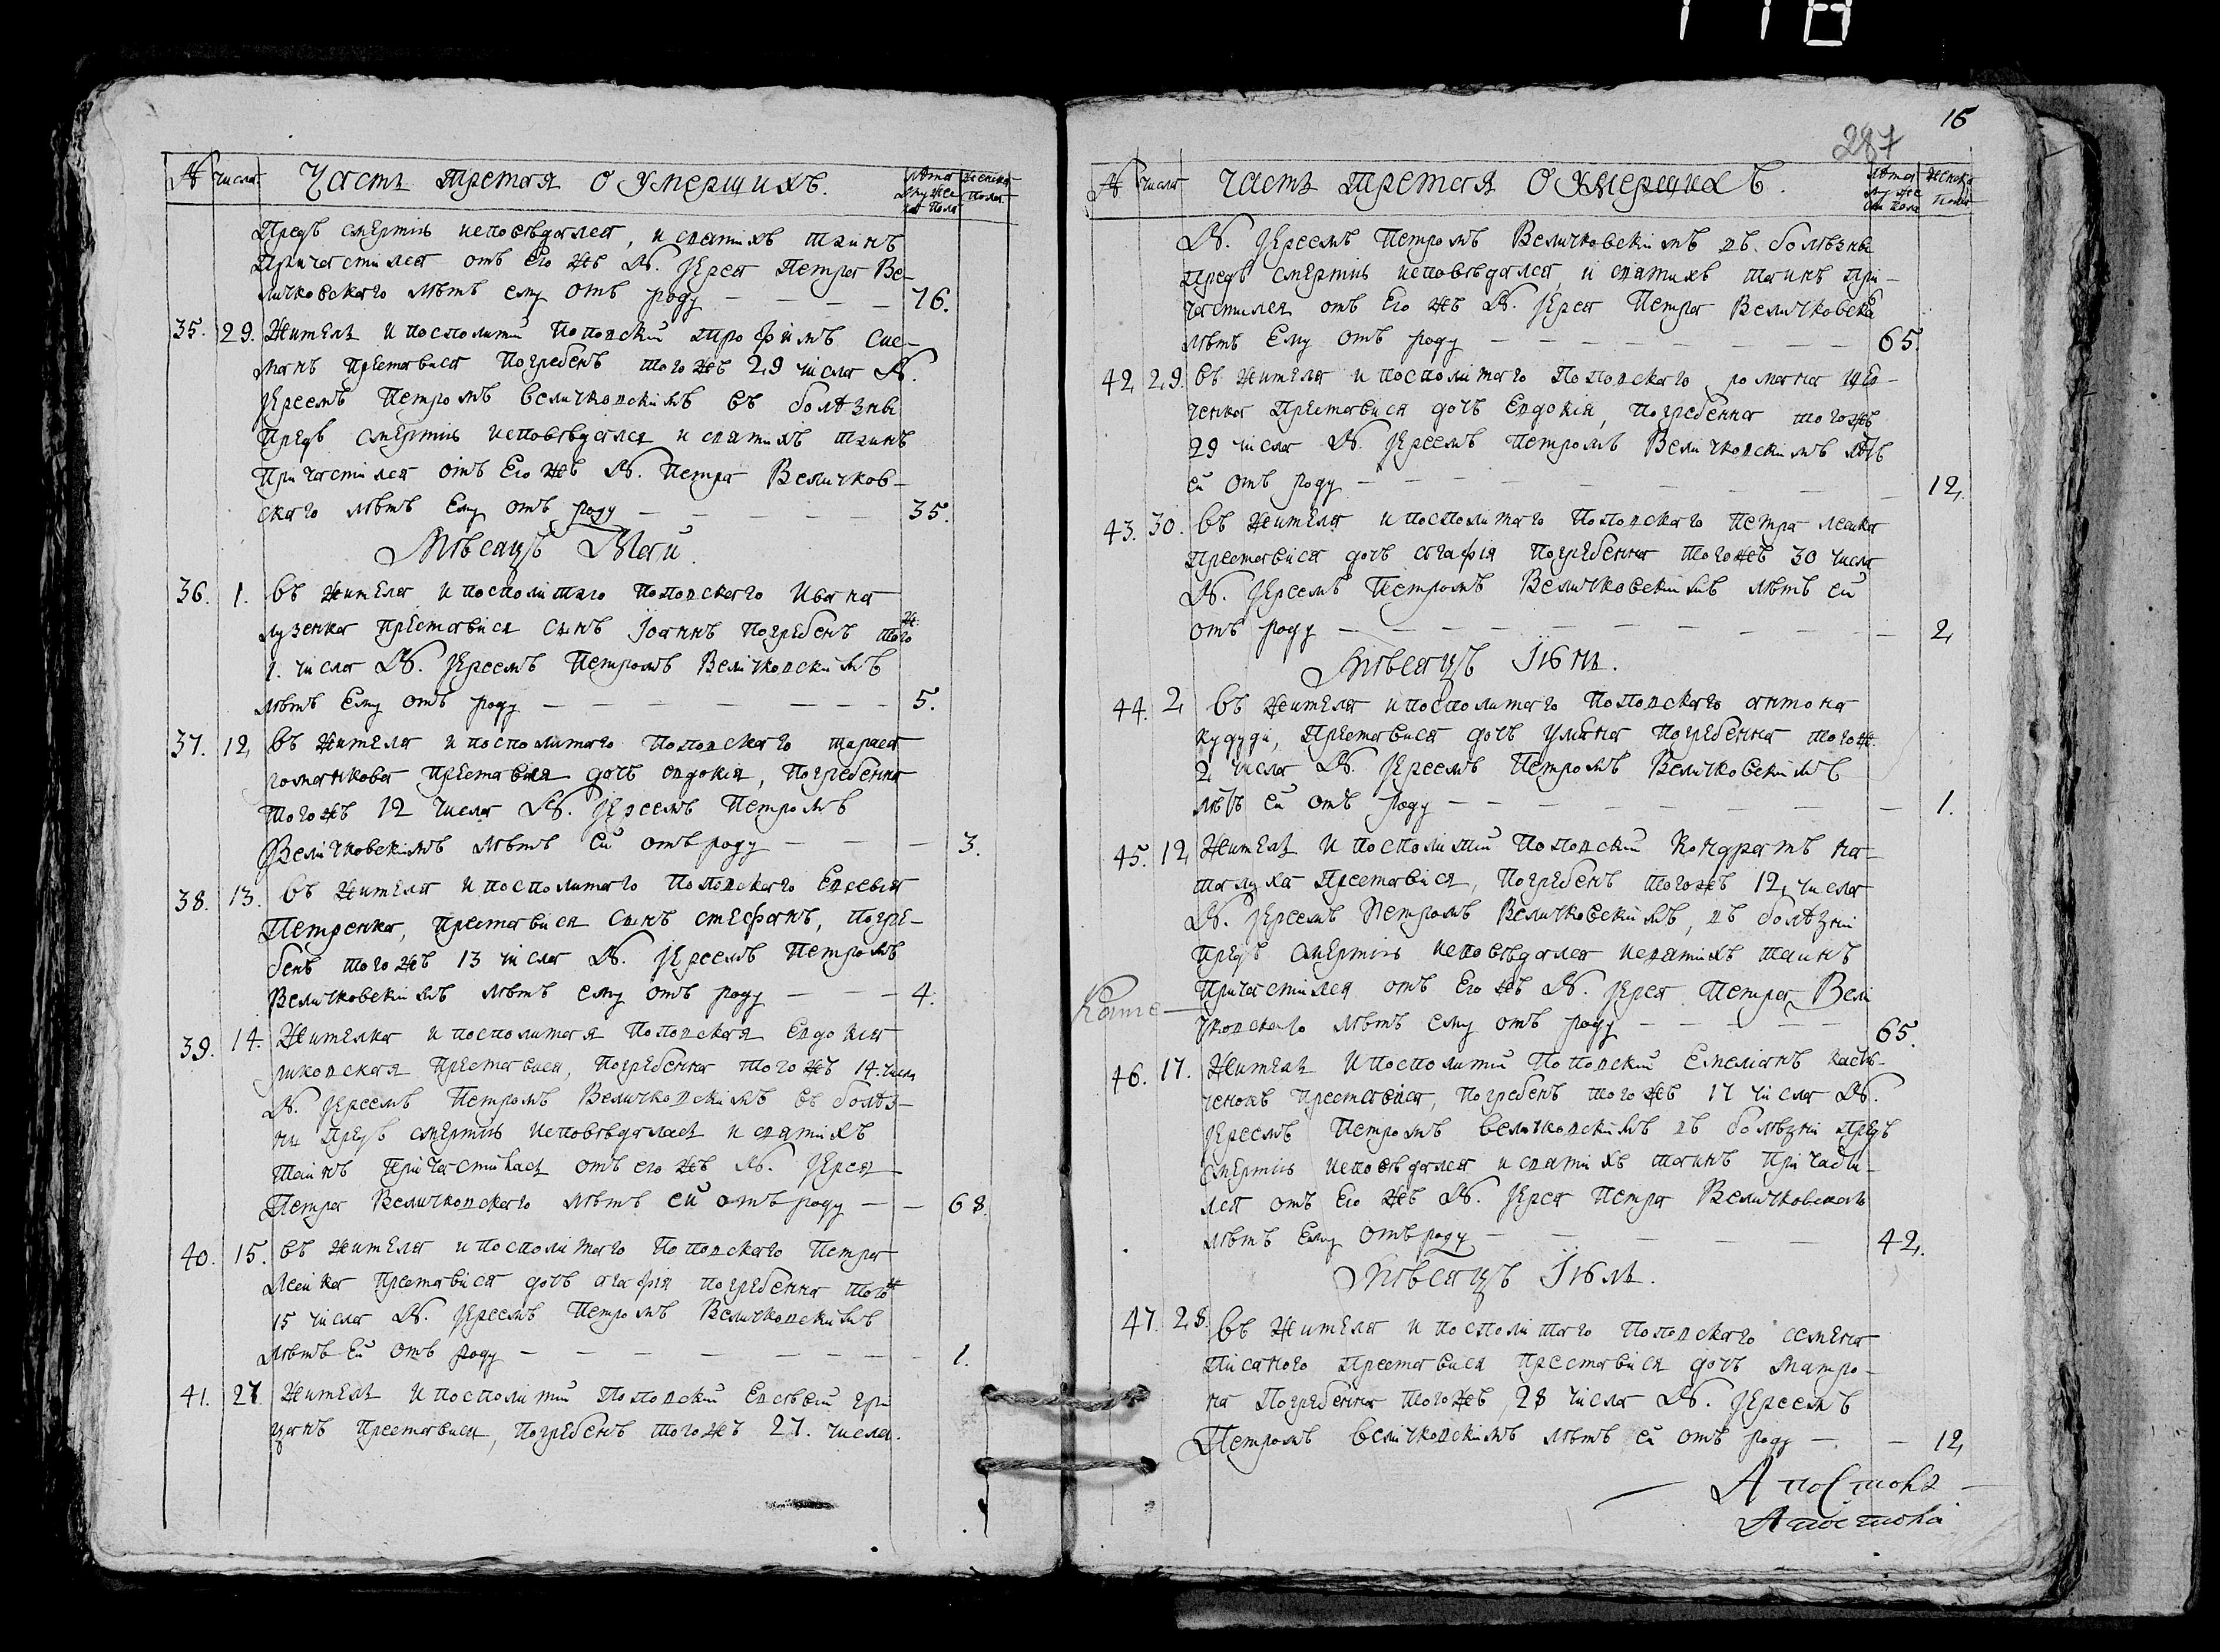 118
№ числа Часть третая о умерших лѣта мужеска пола женска пола
Предъ смертию исповѣдался, и святихъ таинъ
Причастился отъ его же М. Іерея Петра Ве-
личковскаго лѣтъ ему отъ роду — — — — 76.
35. 29. Житель и посполитий поповский Трофимъ Сле-
танъ преставися погребенъ того же 29 числа М.
Іереемъ Петромъ Величковскимъ въ болѣзнѣ
Предъ смертию исповѣдался и святихъ таинъ
Причастился отъ Его же М. Петра Величков-
скаго лѣтъ Ему отъ роду — — — — — 35.
Мѣсяцъ Май.
36. 1. Въ жителя и посполитаго поповскаго Ивана
лузенка преставися сынъ Іоаннъ погребенъ того ж.
1. числа М. Іереемъ Петромъ Величковскимъ
лѣтъ Ему отъ роду — — — — — — — 5.
37. 12, Въ жителя и посполитаго поповскаго тараса
романкова преставися дочь евдокія, погребенна
того же 12 числа М. Іереемъ Петромъ
Величковскимъ лѣтъ Ей отъ роду — — — 3.
38. 13. Въ жителя и посполитаго поповскаго Евсевия
Петренка, преставися сынъ стефанъ, погре-
бенъ того же 13 числа М. Іереемъ Петромъ
Величковскимъ лѣтъ ему отъ роду — — — 4.
39. 14. Жителка и посполитая поповская Евдокия
преставися, погребенна того же 14. числа
М. Іереемъ Петромъ Величковскимъ въ болѣз-
ни предъ смертию исповѣдалась и святихъ
таинъ причастилась отъ его же М. Іерея
Петра Величковскаго лѣтъ ей отъ роду — — 68.
40. 15. Въ жителя и посполитаго поповскаго Петра
Лейка преставися дочь агафія погребенна того ж
15 числа М. Іереемъ Петромъ Величковскимъ
Лѣтъ Ей отъ роду — — — — — — — 1.
41. 27 Житель и посполитий поповский Евсѣвий гри
цанъ преставися, погребенъ того же 27. числа.
287 16
№ числа Часть третая о умерших. лѣта мужеска пола женска пола
М. Іереемъ Петромъ Величковскимъ въ болѣзнѣ
предъ смертию исповѣдался, и святихъ таинъ при-
частился отъ Его же М. Іерея Петра Величковска
лѣтъ Ему отъ роду — — — — — — — 65.
42, 29. Въ жителя и посполитаго поповскаго романа
ченка преставися дочь Евдокія, погребенна того же
29 числа М. Іереемъ Петромъ Величковскимъ лѣтъ
ей отъ роду — — — — — — — 12,
43. 30. Въ жителя и посполитаго поповскаго Петра леика
преставися дочь агафія погребенна того же 30 числа
М. Іереемъ Петромъ Величковскимъ лѣтъ ей
отъ роду — — — — — — — — — 2,
Мѣсяцъ Іюнь.
44. 2, Въ жителя и посполитаго поповскаго антона
кудуди, преставися дочь уляна погребенна того ж.
2 числа М. Іереемъ Петромъ Величковскимъ
лѣтъ ей отъ роду — — — — — — — 1.
45. 12, Житель и посполитий поповский Кондратъ на-
талуха преставися, погребенъ того же 12, числа
М. Іереемъ Петромъ Величковскимъ, въ болѣзнѣ
предъ смертию исповѣдался и святихъ таинъ
Причастился отъ Его же М. Іерея Петра Вели
чковскаго лѣтъ ему отъ роду — — — — — 65.
46. 17. Житель и посполитий поповский Емелианъ
ченокъ преставися, погребенъ того же 17 числа М.
Іереемъ Петромъ Величковскимъ въ болѣзнѣ предъ
смертию исповѣдался и святихъ таинъ причасти-
лся отъ Его же М. Іерея Петра Величковскаго
лѣтъ Ему отъ роду — — — — — 42,
Мѣсяцъ Іюль.
47. 28. Въ жителя и посполитаго поповскаго семена
писаного преставися преставися дочь матро-
на погребенна того же, 28 числа М. Іереемъ
Петромъ Величковскимъ лѣтъ ей отъ роду — — 12,
Апостола
Апостола